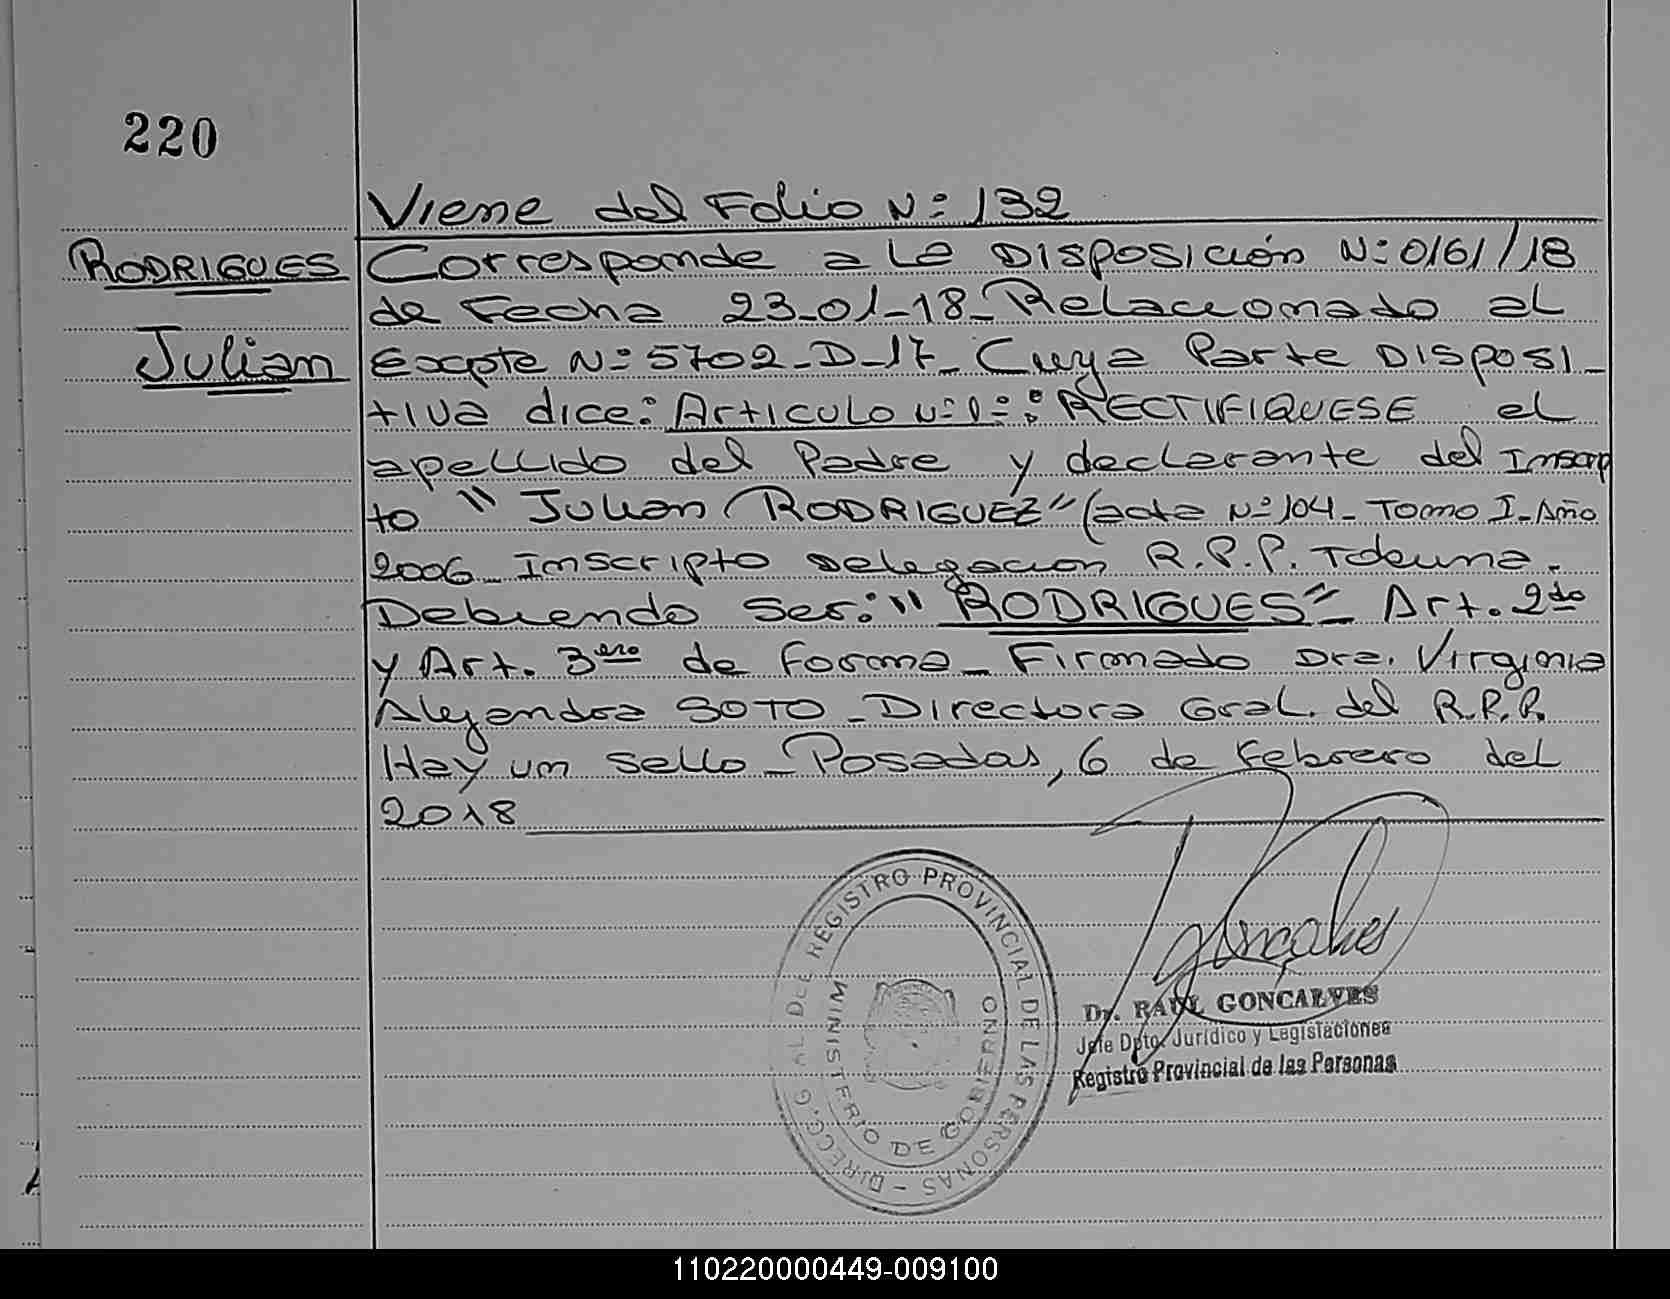 220
Viene del Folio N: 132
RODRIGUES
Julian
Corresponde a la Disposición N: 0161/18
de Fecha 23-01-18- Relacionado al
Expte N: 5702-D-17- Cuya Parte Disposi-
tiva dice: Articulo N: 1=: RECTIFIQUESE el
apellido del Padre y declarante del Inscrip
to "Julian RODRIGUEZ" (acta N: 104- Tomo I- Año
2006- Inscripto Delegacion R.P.P.
Debiendo Ser: "RODRIGUES"- Art. 2do
y Art. 3ero de forma- Firmado Dra. Virginia
Alejandra SOTO- Directora Gral. del R.P.P.
Hay un sello- Posadas, 6 de Febrero del
2018
DIRECC. G AL DEL REGISTRO PROVINCIAL DE LAS PERSONAS -
MINISTERIO DE GOBIERNO
Goncalves
Dr. RAUL GONCALVES
Jefe Dpto. Jurídico y Legislaciones
Registro Provincial de las Personas
110220000449-009100